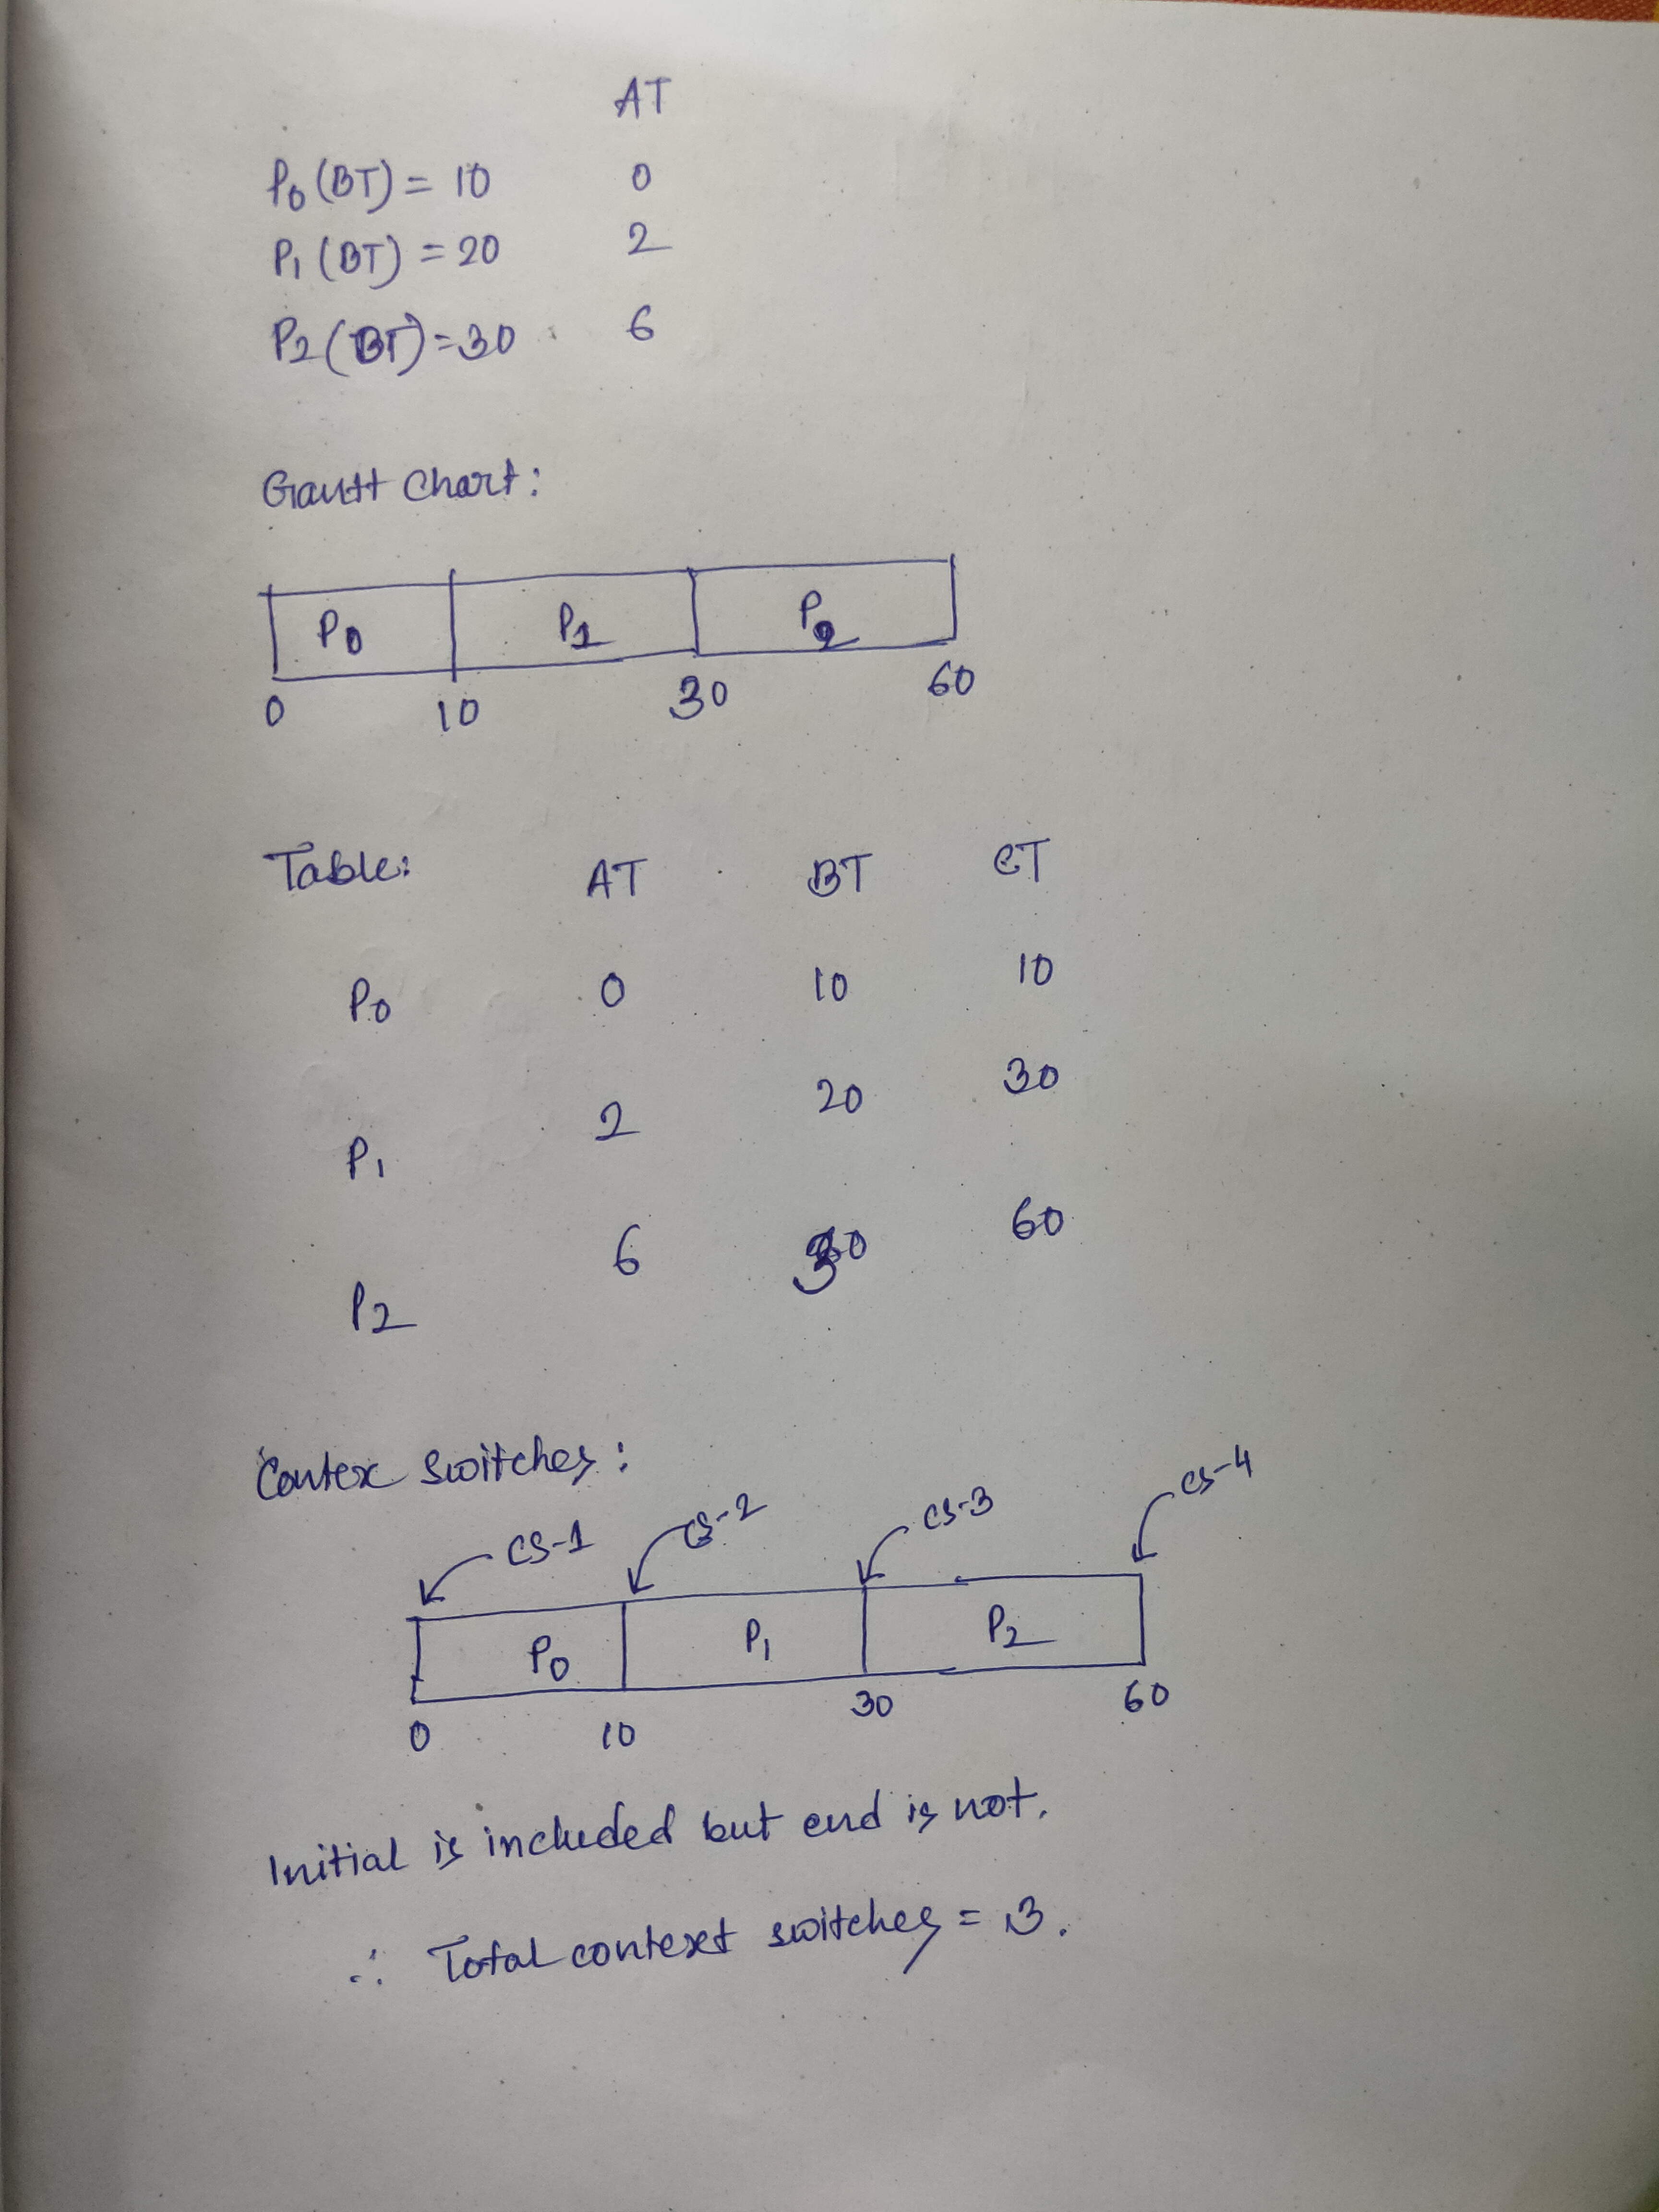 AT
P0 (BT) = 10 0
P1 (BT) = 20 2
P2 (BT) = 30 6
Gantt Chart:
P0 P1 P2
0 10 30 60
Table: AT BT CT
P0 0 10 10
P1 2 20 30
P2 6 30 60
Contex switches:
CS-1 CS-2 CS-3 CS-4
P0 P1 P2
0 10 30 60
Initial is included but end is not.
∴ Total context switches = 3.